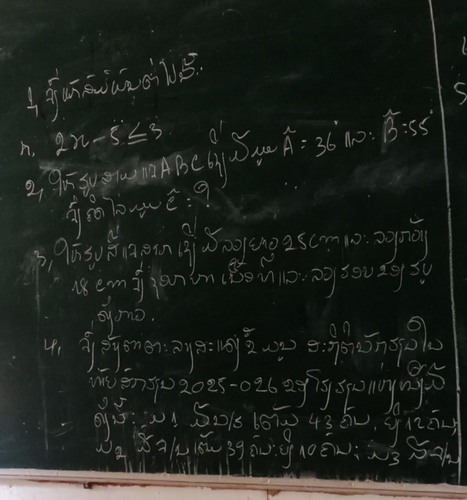 1, ຈົ່ງແກ້ອະສົມຜົນຕໍ່ໄປນີ້:
ກ. 2x - 5 ≤ 3
2, ໃຫ້ຮູບສາມແຈ ABC ເຊິ່ງມີມູມ Â = 36° ແລະ B̂ = 55°
ຈົ່ງຄິດໄລ່ມູມ Ĉ = ?
3, ໃຫ້ຮູບສີ່ແຈສາກ ເຊິ່ງມີລວງຍາວ 25 cm ແລະ ລວງກວ້າງ
18 cm ຈົ່ງຊອກຫາເນື້ອທີ່ ແລະ ລວງຮອບຂອງຮູບ
ດັ່ງກ່າວ.
4, ຈົ່ງສ້າງຕາຕະລາງສະແດງຂໍ້ມູນ ສະຖິຕິນັກຮຽນໃນ
ສົກຮຽນ 2025-026 ຂອງໂຮງຮຽນແຫ່ງໜຶ່ງມີ
ດັ່ງນີ້: ມ1 ມີ ເຕັມ 43 ຄົນ, ຍິງ 12 ຄົນ,
ມ2 ມີ ເຕັມ 39 ຄົນ ຍິງ 10 ຄົນ; ມ3 ມີ